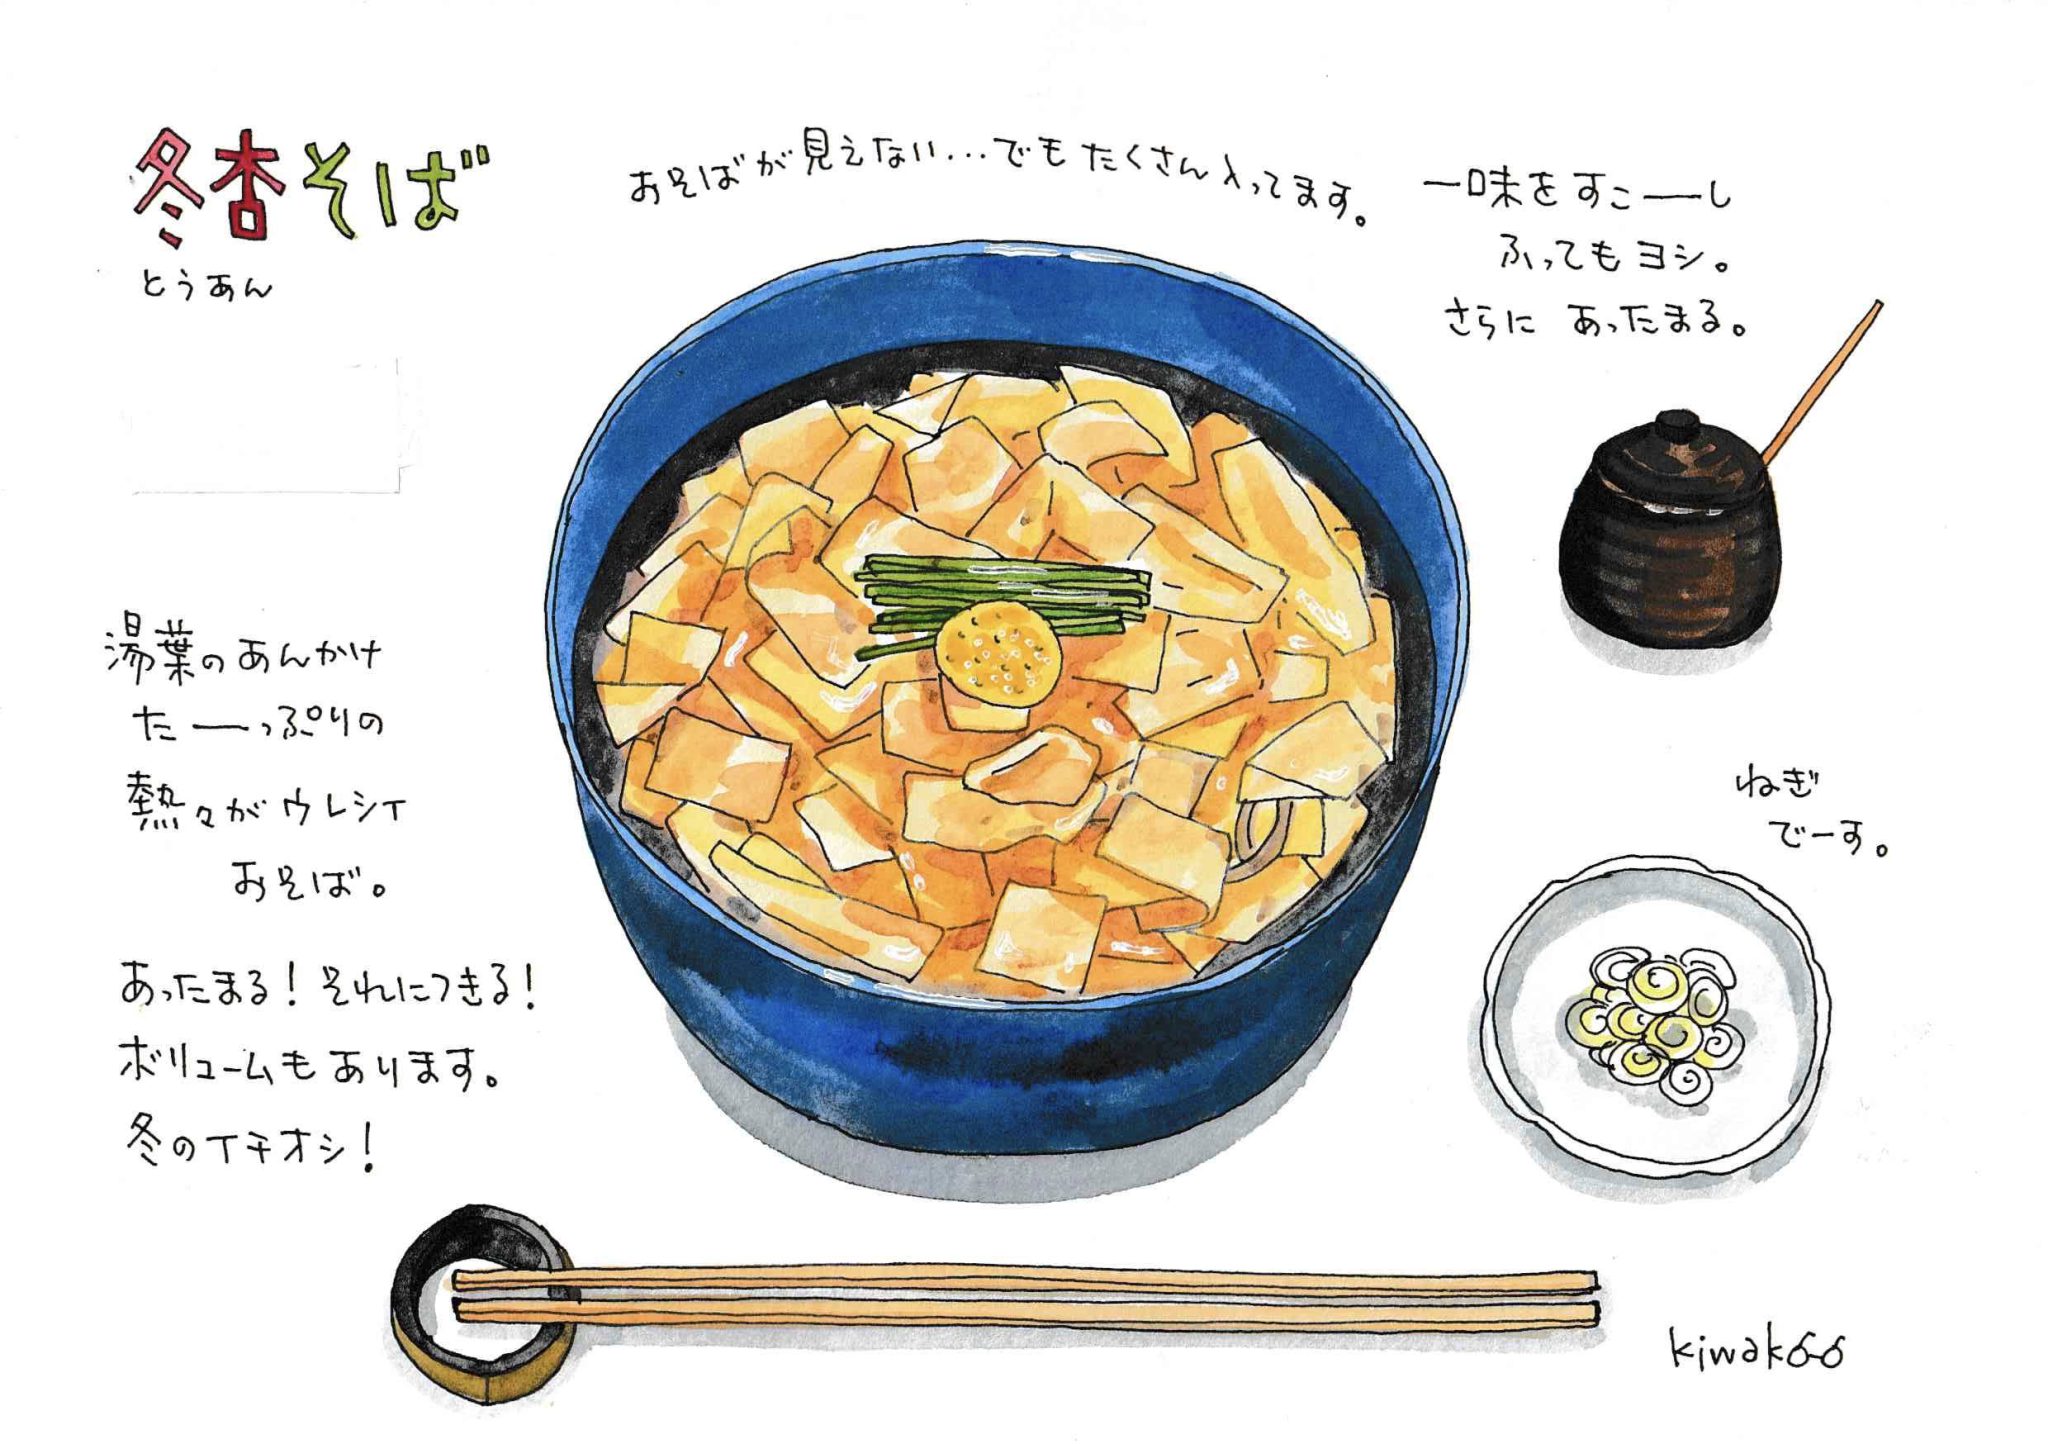 冬杏そば
とうあん
おそばが見えない...でもたくさん入ってます。
一味をすこーーし
ふってもヨシ。
さらに あったまる。
湯葉のあんかけ
たーーっぷりの
熱々がウレシイ
おそば。
あったまる!それにつきる!
ボリュームもあります。
冬のイチオシ!
ねぎ
でーす。
kiwakoo